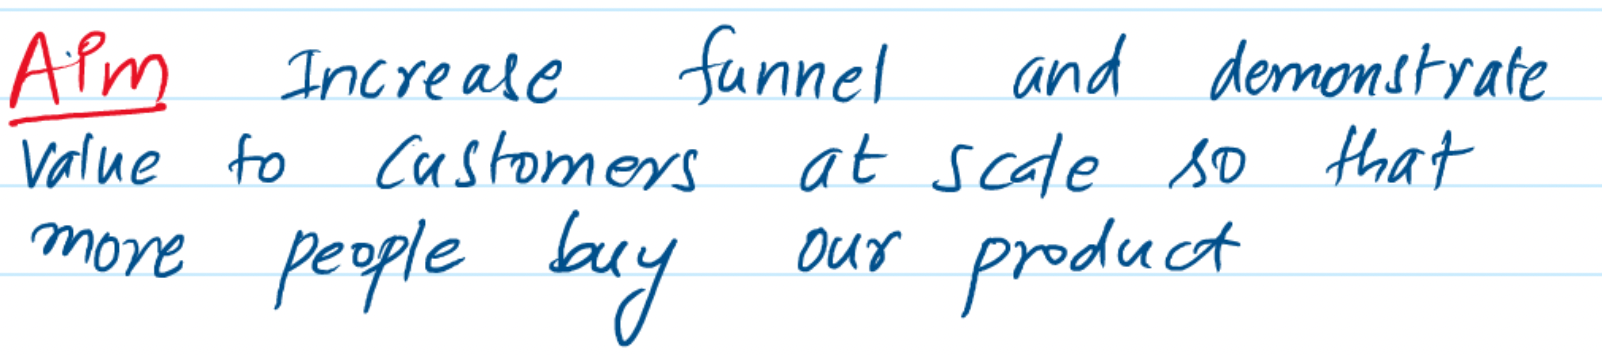 Aim Increase funnel and demonstrate
value to customers at scale so that
more people buy our product